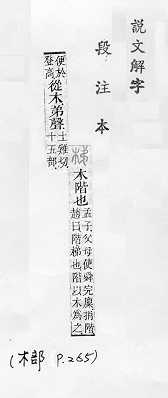 說文解字
段注本
梯 木階也 孟子父母使舜完廩捐階
趙曰階梯也階以木為之
便於
登高 從木弟聲 土雞切
十五部
(木部 P.265)